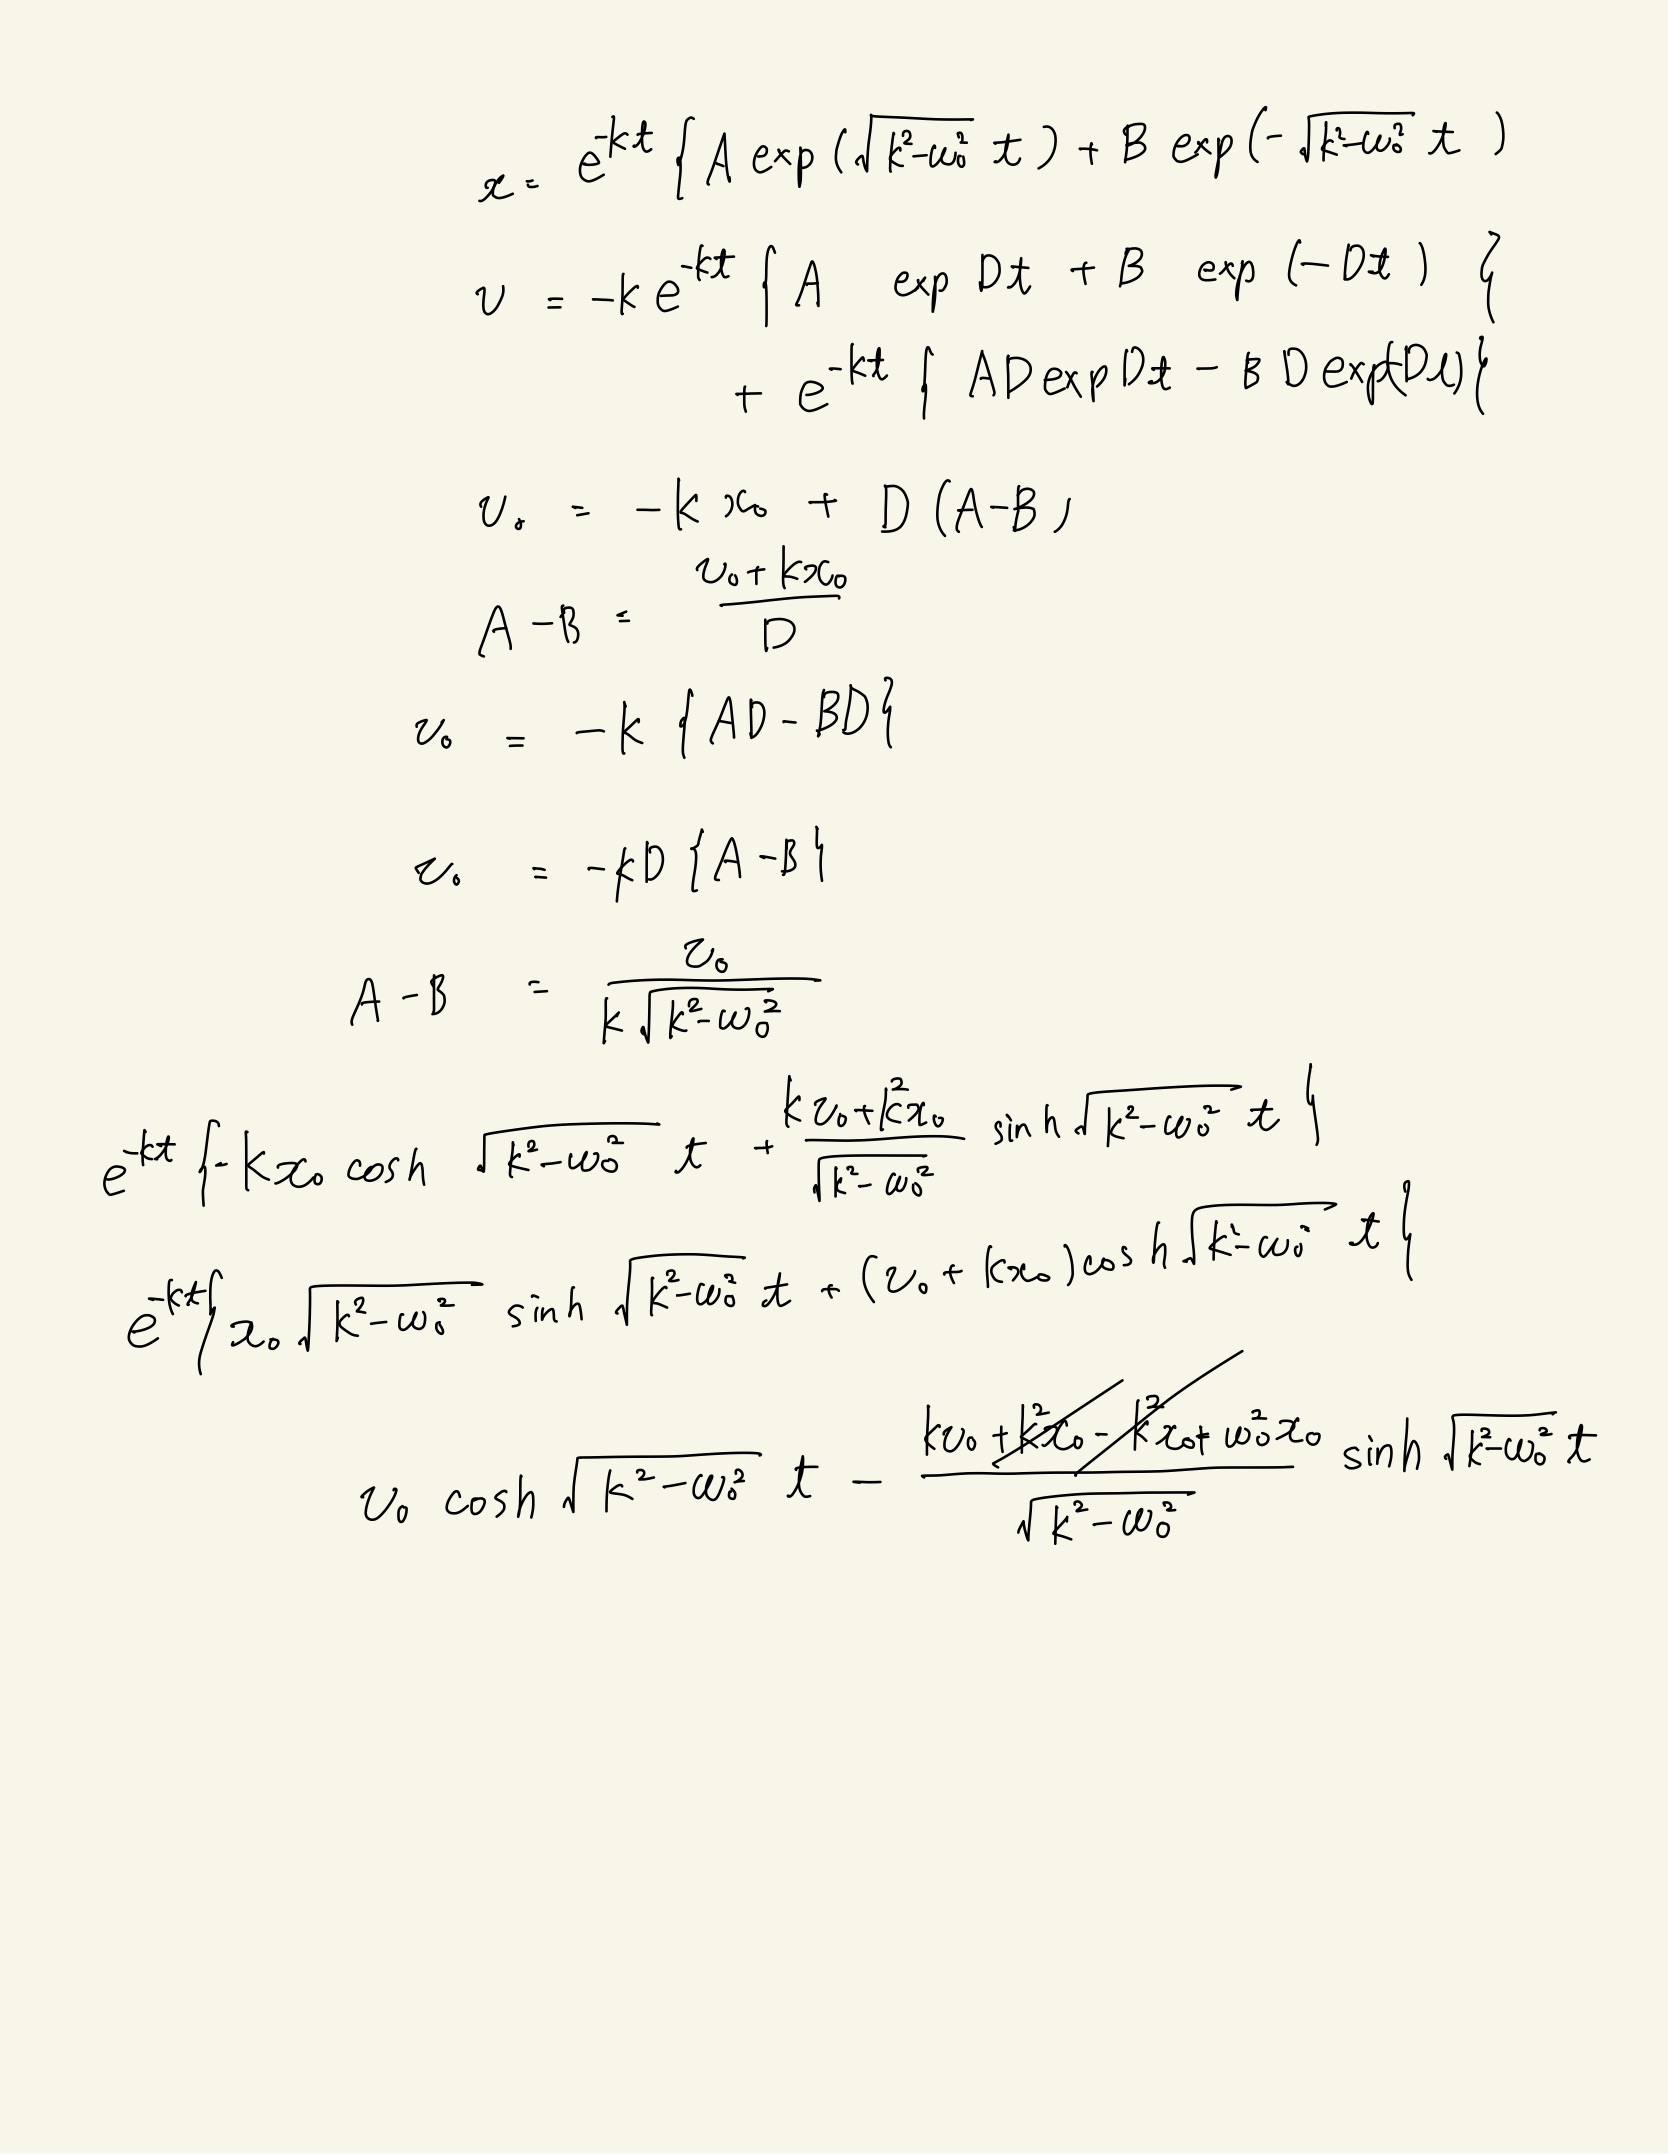 x = e^{-kt} { A exp (√(k²-ω₀²) t ) + B exp (- √(k²-ω₀²) t )
v = -k e^{-kt} { A exp Dt + B exp (-Dt ) }
+ e^{-kt} { AD exp Dt - B D exp(-Dt) }
v₀ = -k x₀ + D (A-B)
A - B = (v₀ + kx₀)/D
v₀ = -k { AD - BD }
v₀ = -kD { A - B }
A - B = v₀/(k √(k²-ω₀²))
e^{-kt} { -kx₀ cosh √(k²-ω₀²) t + (kv₀+k²x₀)/√(k²-ω₀²) sinh √(k²-ω₀²) t }
e^{-kt} { x₀ √(k²-ω₀²) sinh √(k²-ω₀²) t + (v₀ + kx₀) cosh √(k²-ω₀²) t }
v₀ cosh √(k²-ω₀²) t - (kv₀ + k²x₀ - k²x₀ + ω₀²x₀)/√(k²-ω₀²) sinh √(k²-ω₀²) t